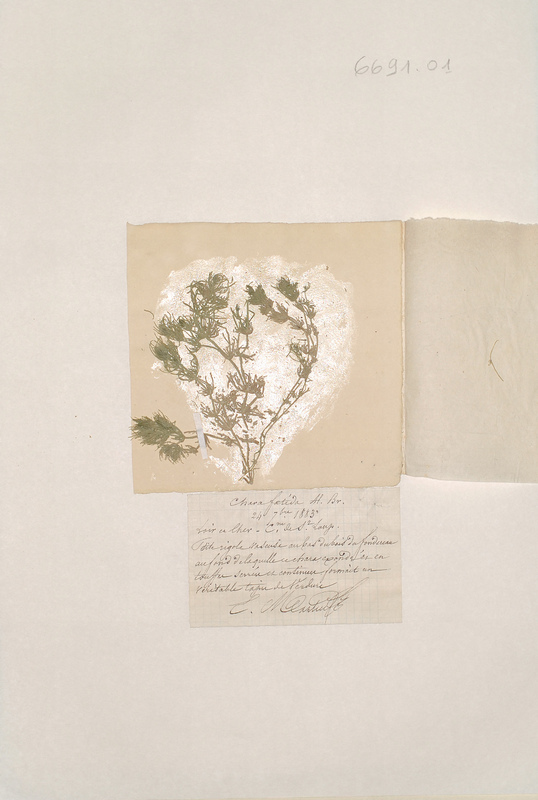 6691.01
Chara fœtida Al. Br.
24 7bre 1883
Loir et Cher - Cne de St Loup.
Petite rigole vaseuse au bas du bois de
au fond de laquelle ce chara épandu en
touffes serrées et continues formait un
véritable tapis de verdure
E. Martin